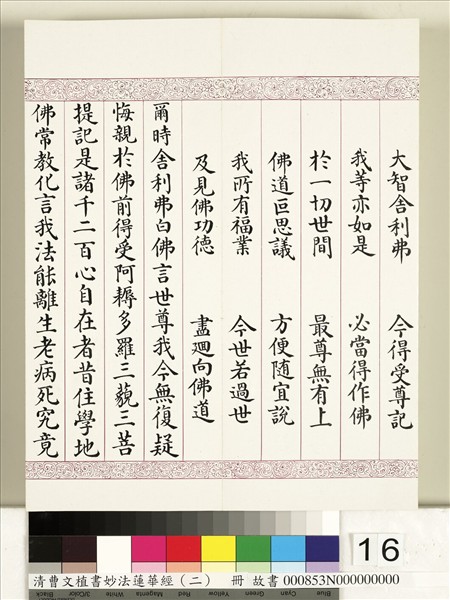 大智舍利弗　今得受尊記
我等亦如是　必當得作佛
於一切世間　最尊無有上
佛道叵思議　方便隨宜說
我所有福業　今世若過世
及見佛功德　盡迴向佛道
爾時舍利弗白佛言世尊我今無復疑
悔親於佛前得受阿耨多羅三藐三菩
提記是諸千二百心自在者昔住學地
佛常教化言我法能離生老病死究竟
16
清曹文植書妙法蓮華經（二） 冊 故書 000853N000000000
Black 3/Color White Magenta Red Yellow Green Cyan Blue